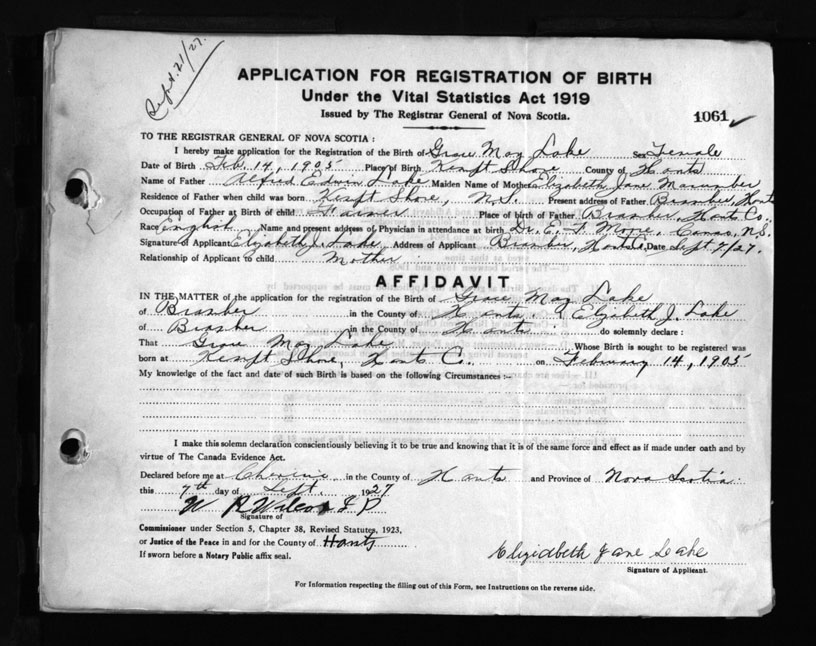 Sept. 21/27.
APPLICATION FOR REGISTRATION OF BIRTH
Under the Vital Statistics Act 1919
Issued by The Registrar General of Nova Scotia.
1061 ✓
TO THE REGISTRAR GENERAL OF NOVA SCOTIA :
I hereby make application for the Registration of the Birth of Grace May Lake Sex Female
Date of Birth Feb. 14, 1905 Place of Birth Kempt Shore County of Hants
Name of Father Alfred Edwin Lake Maiden Name of Mother Elizabeth Jane
Residence of Father when child was born Kempt Shore, N.S. Present address of Father Bramber, Hants
Occupation of Father at Birth of child Farmer Place of birth of Father Bramber, Hants Co.
Race English Name and present address of Physician in attendance at birth Dr. E. F. Moore, Canso, N.S.
Signature of Applicant Elizabeth J. Lake Address of Applicant Bramber, Hants Date Sept 7/27.
Relationship of Applicant to child Mother
AFFIDAVIT
IN THE MATTER of the application for the registration of the Birth of Grace May Lake
of Bramber in the County of Hants I Elizabeth J. Lake
of Bramber in the County of Hants do solemnly declare :
That Grace May Lake Whose Birth is sought to be registered was
born at Kempt Shore, Hants Co. on February 14, 1905
My knowledge of the fact and date of such Birth is based on the following Circumstances :-
I make this solemn declaration conscientiously believing it to be true and knowing that it is of the same force and effect as if made under oath and by
virtue of The Canada Evidence Act.
Declared before me at Cheverie in the County of Hants and Province of Nova Scotia
this 7th day of Sept. 1927
W R Wilcox J P
Signature of
Commissioner under Section 5, Chapter 38, Revised Statutes, 1923,
or Justice of the Peace in and for the County of Hants
If sworn before a Notary Public affix seal.
Elizabeth Jane Lake
Signature of Applicant.
For Information respecting the filling out of this Form, see Instructions on the reverse side.